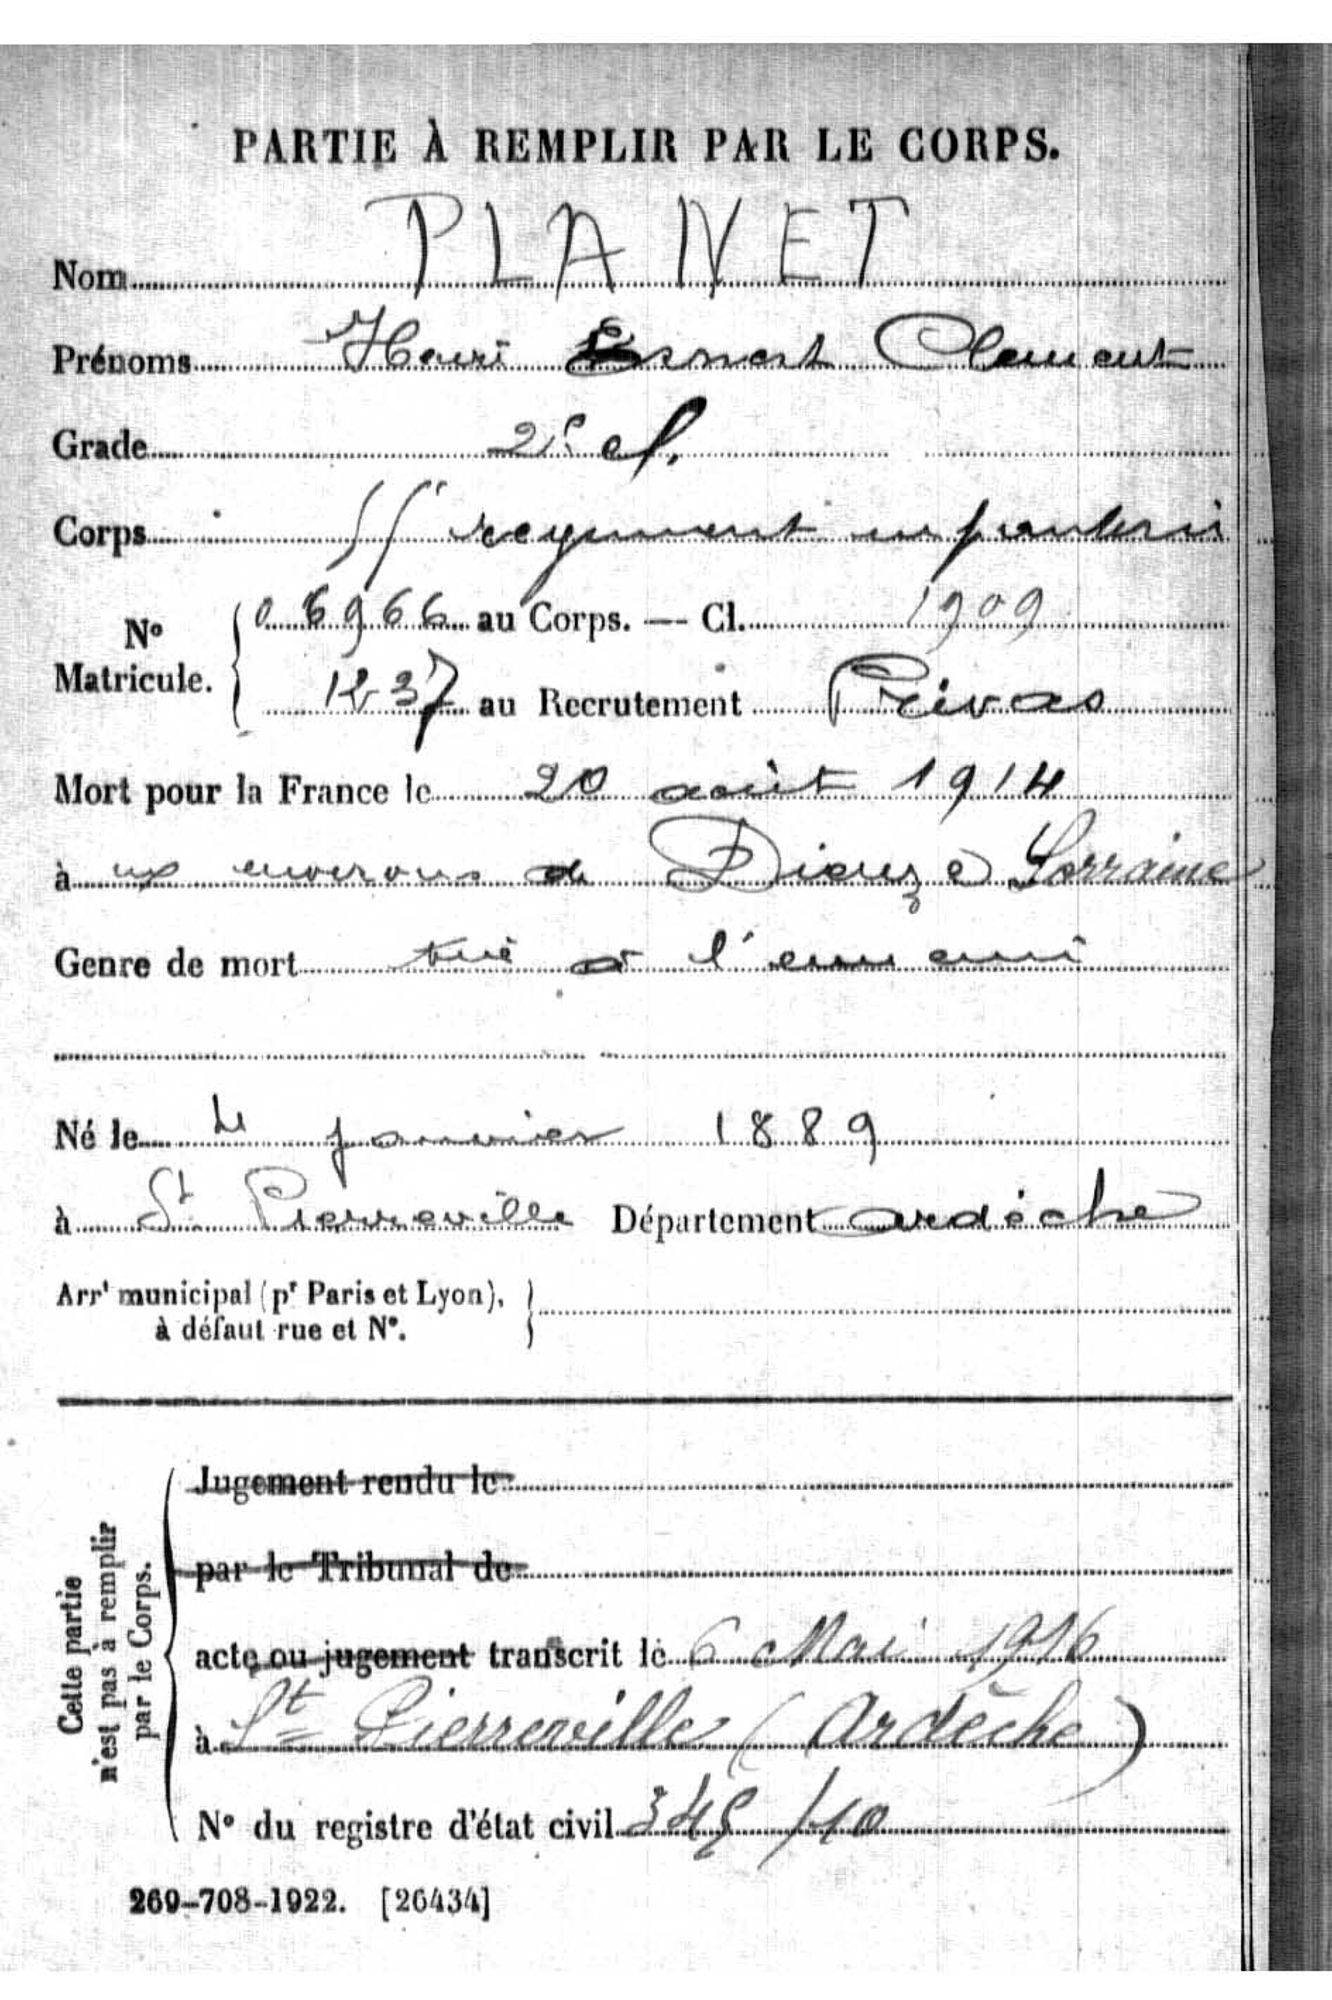 PARTIE À REMPLIR PAR LE CORPS.
Nom PLANET
Prénoms Henri Ernest Clement
Grade 2e cl.
Corps 55e regiment infanterie
No Matricule. 06966 au Corps. — Cl. 1909
1237 au Recrutement Privas
Mort pour la France le 20 août 1914
à ux environs de Dieuze Lorraine
Genre de mort tué à l'ennemi
Né le 4 janvier 1889
à St Pierreville Département ardèche
Arrt municipal (pr Paris et Lyon),
à défaut rue et No.
Cette partie
n'est pas à remplir
par le Corps.
Jugement rendu le
par le Tribunal de
acte ou jugement transcrit le 6 Mai 1916
à St Pierreville (Ardèche)
No du registre d'état civil 345/10
269-708-1922. [26434]